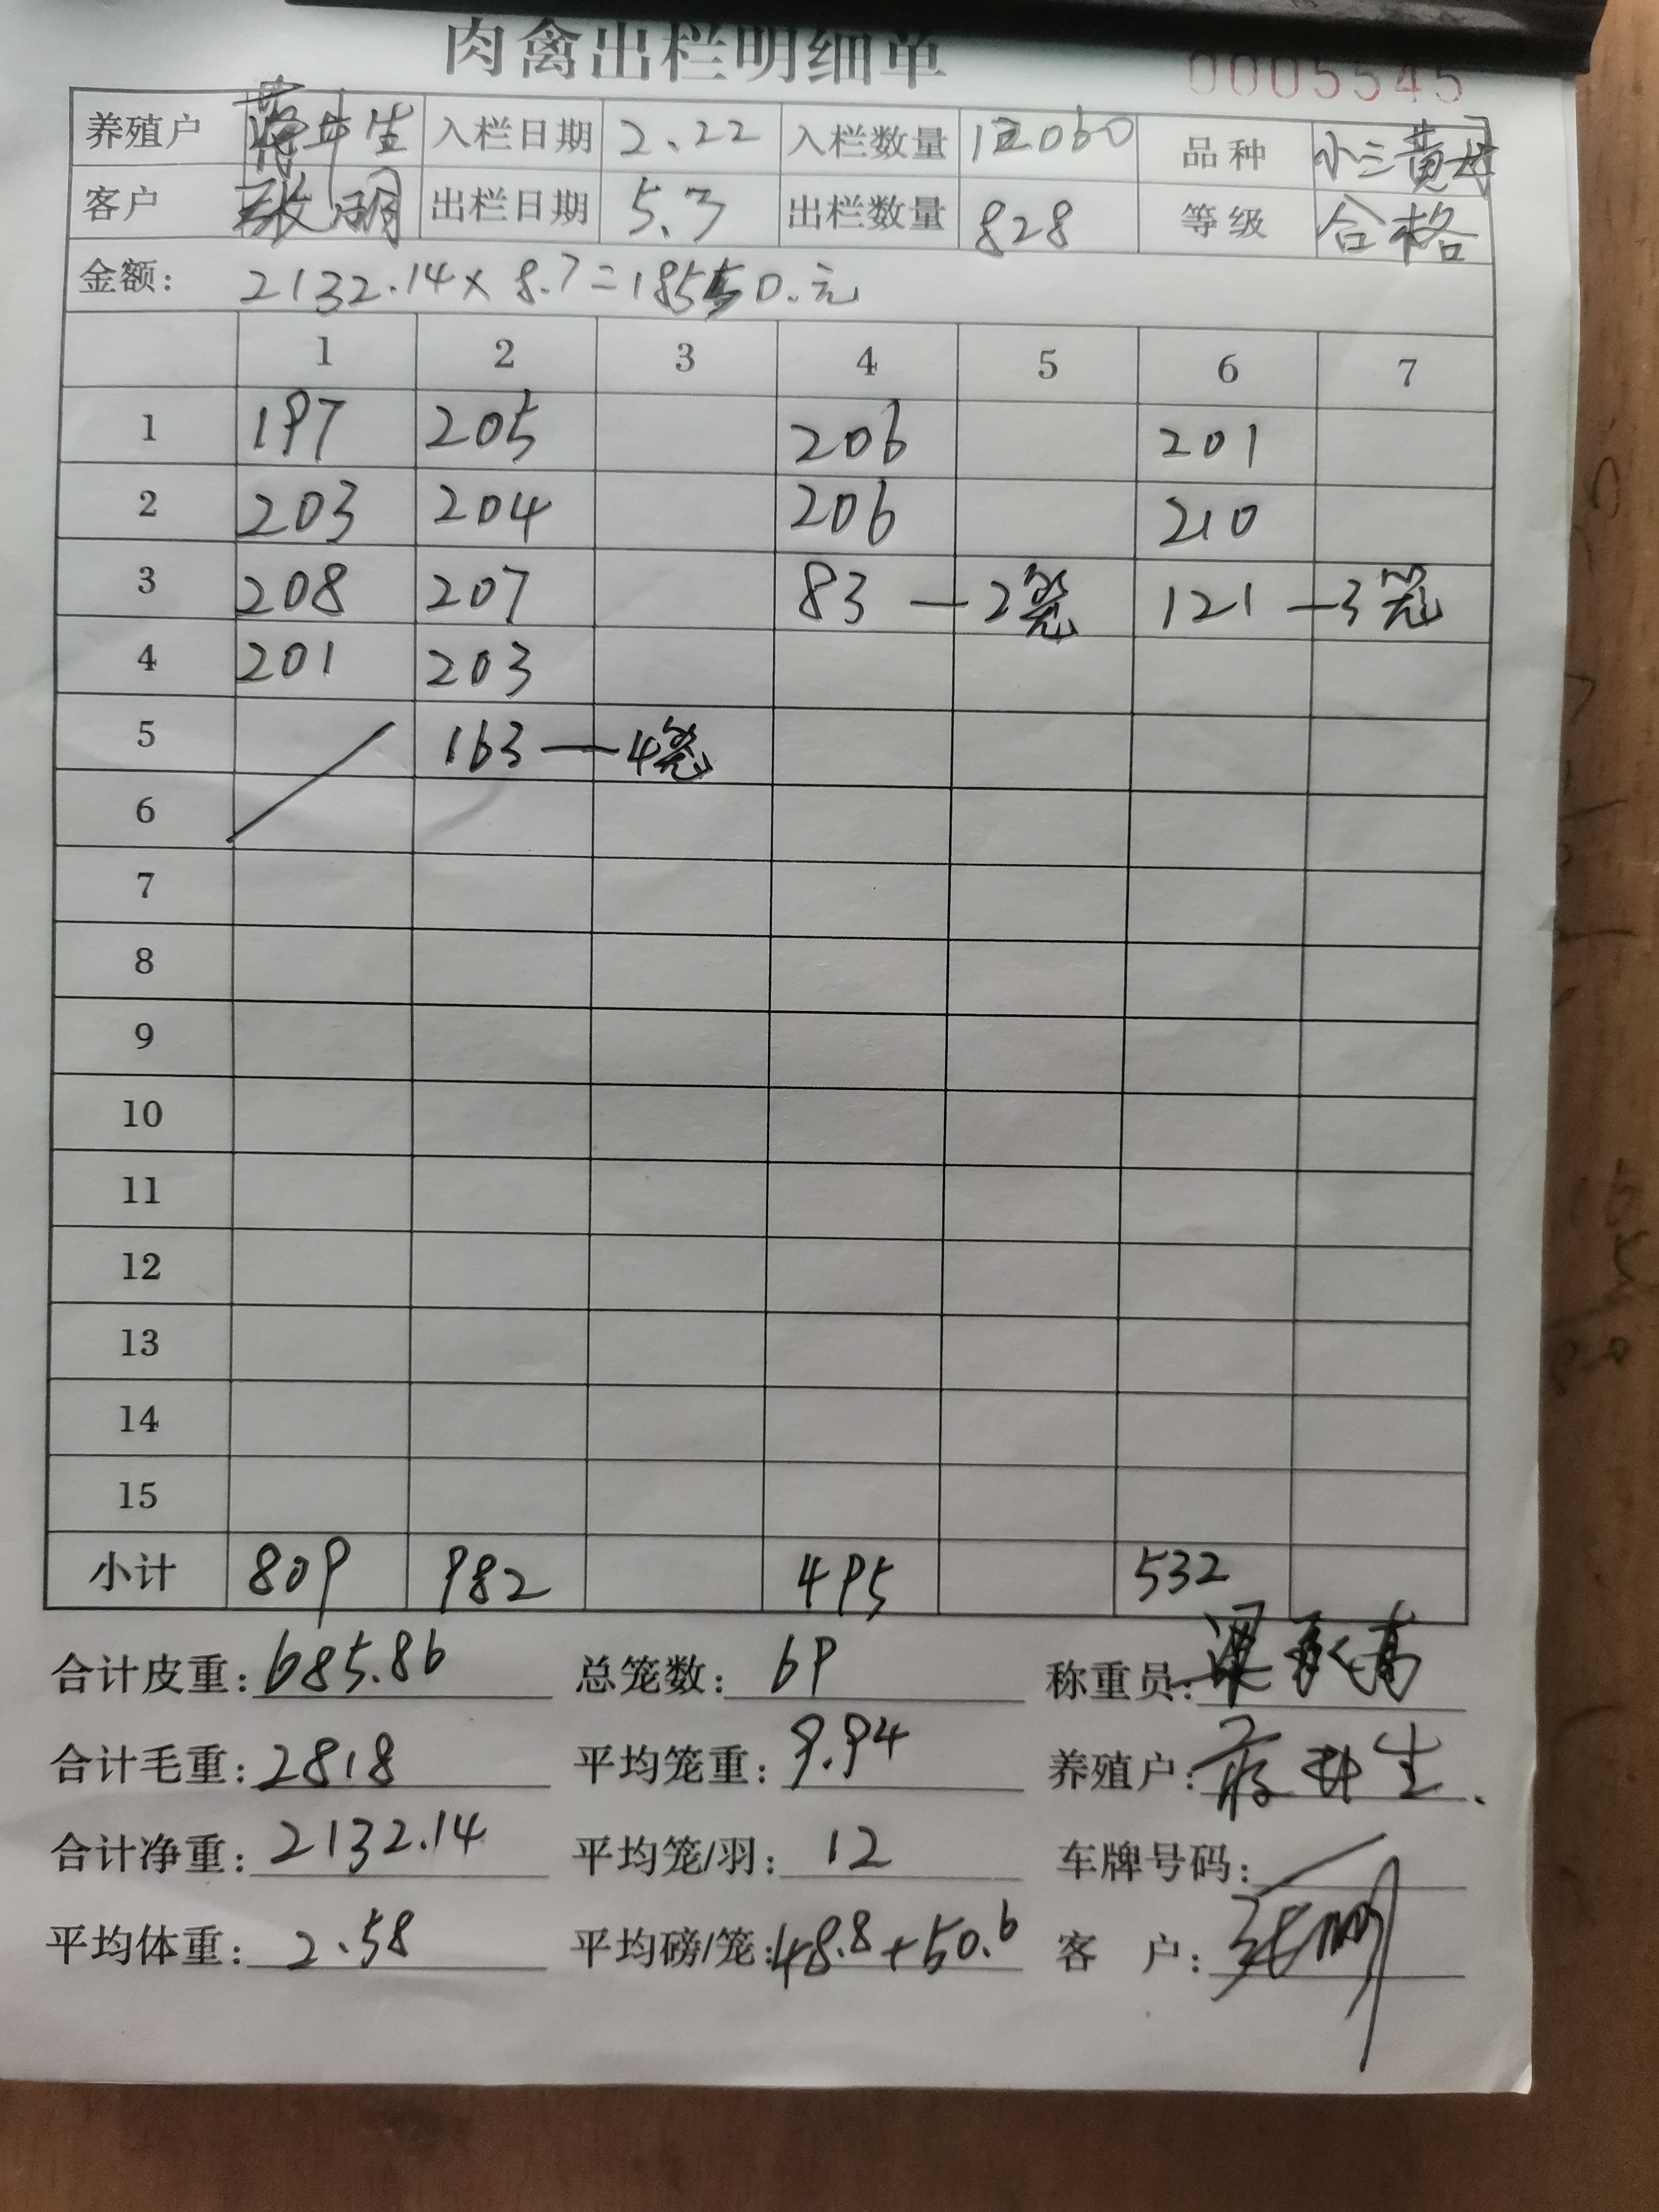 肉禽出栏明细单
0005545
养殖户 蒋井生 入栏日期 2.22 入栏数量 12060 品种 小三黄母
客户 张明 出栏日期 5.3 出栏数量 828 等级 合格
金额: 2132.14×8.7=18550.元
1 2 3 4 5 6 7
1 197 205 206 201
2 203 204 206 210
3 208 207 83—2笼 121—3笼
4 201 203
5 163—4笼
6
7
8
9
10
11
12
13
14
15
小计 809 982 495 532
合计皮重: 685.86 总笼数: 69 称重员:
合计毛重: 2818 平均笼重: 9.94 养殖户: 蒋井生
合计净重: 2132.14 平均笼/羽: 12 车牌号码:
平均体重: 2.58 平均磅/笼: 48.8+50.6 客 户: 张明